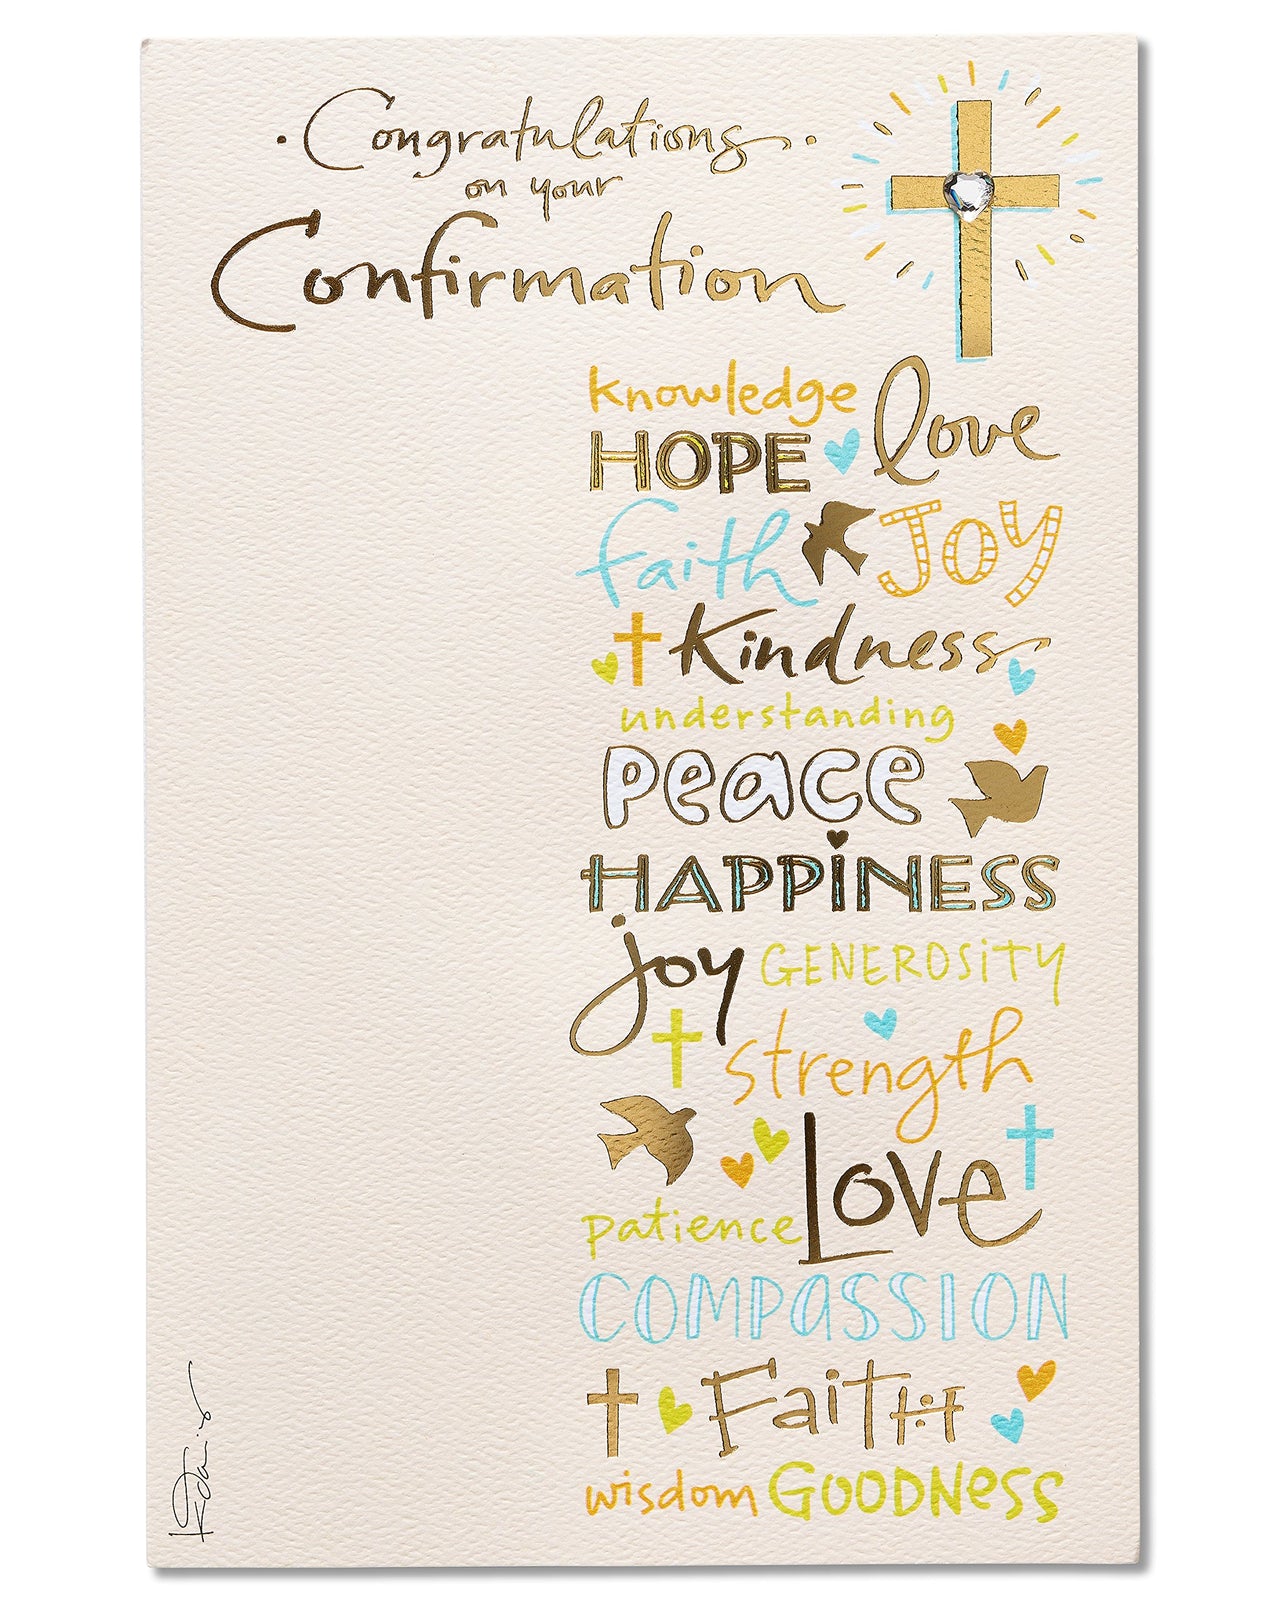 Congratulations
on your
Confirmation
knowledge
HOPE love
faith JOY
Kindness
understanding
peace
HAPPINESS
joy GENEROSITY
strength
LOVe
patience
COMPASSION
FaiTH
wisdom GOODNeSS